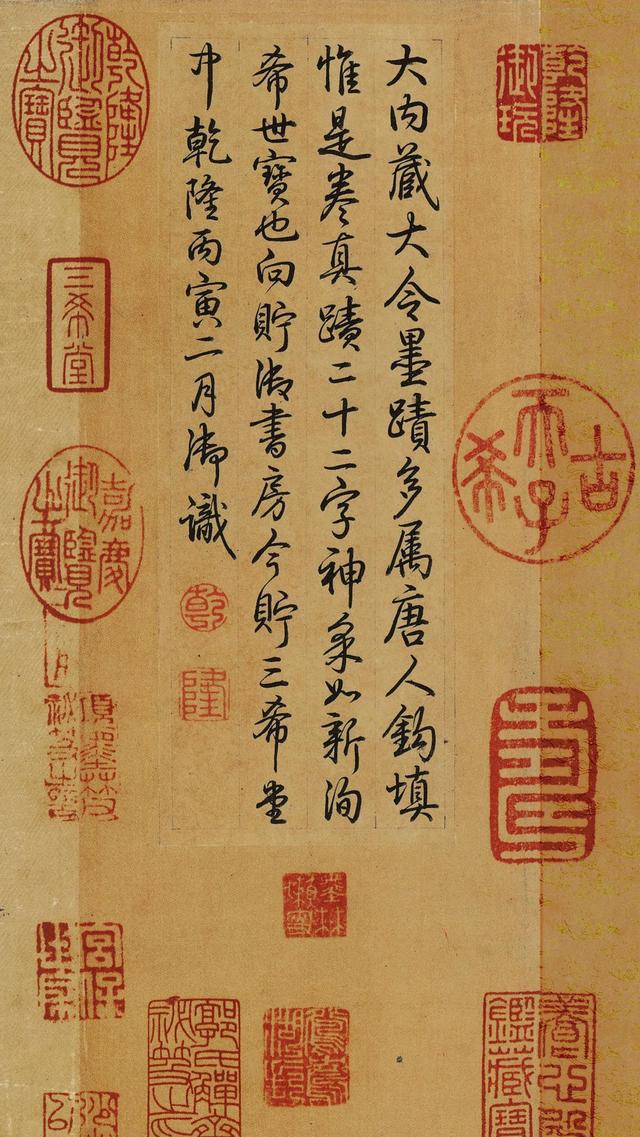 乾隆御玩
古希天子
壽
養心殿鑑藏寶
大内藏大令墨蹟多属唐人鉤填
惟是卷真蹟二十二字神采如新洵
希世寶也向貯御書房今貯三希堂
中乾隆丙寅二月御識
乾
隆
乾隆御覽之寶
三希堂
嘉慶御覽之寶